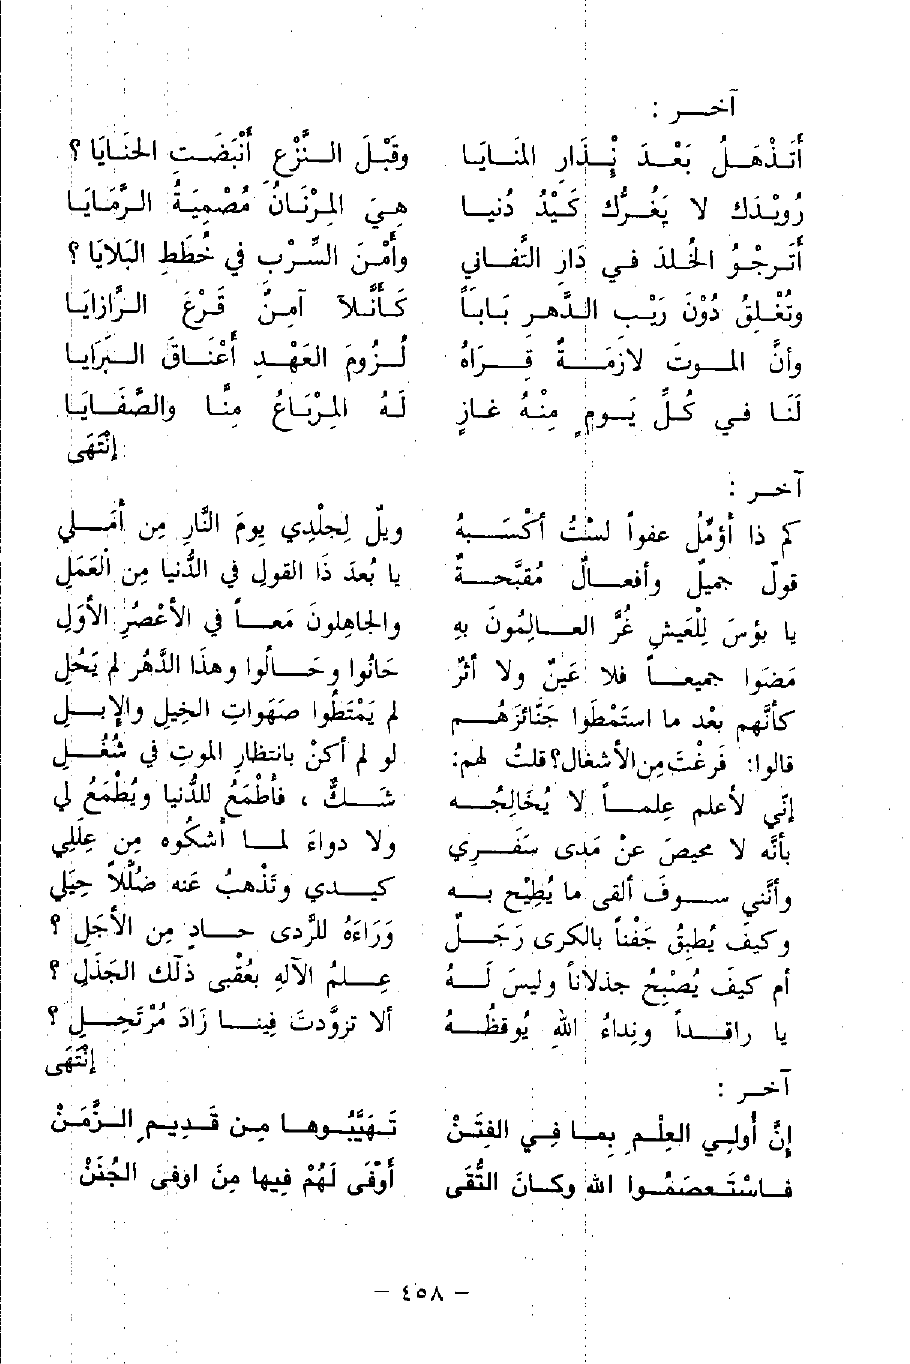 آخــر :
أَتَذْهَــلُ بَعْــدَ إِنــذَار المَنَــايَـا وقَبْـلَ الــنَّزْعِ أَنْبَضَـتِ الحَنَـايَا ؟
رُوَيْـدَك لا يَغُــرُّكَ كَيْـدُ دُنيــا هِـيَ المِـرْنَـانُ مُصْمِيَـةُ الـرَّمَـايَـا
أَتَـرجُــوُ الخُـلدَ فـي دَار التَّفـاني وأَمْـنَ السَّـرْبِ في خُطَطِ البَلايَا ؟
وتُغْـلِقُ دُوْنَ رَيْـبِ الـدَّهـرِ بَـابَـاً كَـأَنَّـكَ آمِـنٌ قَـرْعَ الـرَّزايَـا
وأنَّ المـــوتَ لازمَـــةٌ قِـــرَاهُ لُـزُومَ العَهْـدِ أَعْنَـاقَ الـبَرَايَـا
لَنَـا فـي كُـلِّ يَـومٍ مِنْـهُ غَـازٍ لَـهُ المِـرْبَـاعُ مِنَّـا والصَّفَـايَـا
إنْتَهَى
آخــر :
كم ذا أُؤمِّلُ عفواً لستُ أكْسَبُـهُ ويلٌ لِجِلْدِي يومَ النَّارِ مِن أَمَــلي
قولٌ جميلٌ وأفعـالٌ مُقبَّحـةٌ يا بُعدَ ذَا القولِ في الدُّنيا مِن العَمَلِ
يا بؤسَ لِلْعَيشِ غُرَّ العـالِمُونَ بِهِ والجاهِلونَ مَعـاً في الأعْصُرِ الأوَلِ
مَضَوا جميعـاً فلا عَينٌ ولا أثَرٌ خَانُوا وحَـالُوا وهذَا الدَّهْر لم يَحُلِ
كأنَّهم بعْد ما استَمْطَوا جَنَائزَهُـم لم يَمْتَطُوا صَهَواتِ الخيلِ والإبـلِ
قالوا: فَرغْتَ مِن الأشغال؟ قلتُ لهم: لو لم أكنْ بانتظارِ الموتِ في شُغُـلِ
إنّي لأعلم علمـاً لا يُخَالِجُـه شـكٌّ ، فأطْمَعُ للدُّنيا ويُطْمَعُ لي
بأنَّه لا محيصَ عنْ مَدَى سَفَـري ولا دواءَ لمـا أشكُوه مِن عِلَلي
وأنَّني سـوفَ ألقى ما يُطِيْح بـه كيـدي وتذْهبُ عنه ضُلَّلاً حِيَلي
وكيفَ يُطبِقُ جَفْناً بالكرى رَجلٌ وَرَاءَهُ للرَّدى حـادٍ مِن الأجَلِ ؟
أم كيفَ يُصْبِحُ جذلاناً وليسَ لَـهُ عِـلمُ الآلهِ بعُقْبى ذلك الجَذَلِ ؟
يا راقـداً ونداءُ اللهِ يُوقظُـهُ ألا تزوَّدتَ فِينـا زَادَ مُرْتَحِـلِ ؟
إنْتَهَى
آخــر :
إنَّ أولـي العِلْمِ بِمـا فِـي الفِتَـنْ تَـهَيَّبُـوهـا مِـن قَـديـمِ الـزَّمَـنْ
فـاسْتَـعصَمُـوا اللهَ وكـانَ التُّقَى أَوْفَى لَهُمْ فِيها مِنَ اوفى الجُنَنْ
– ٤٥٨ –